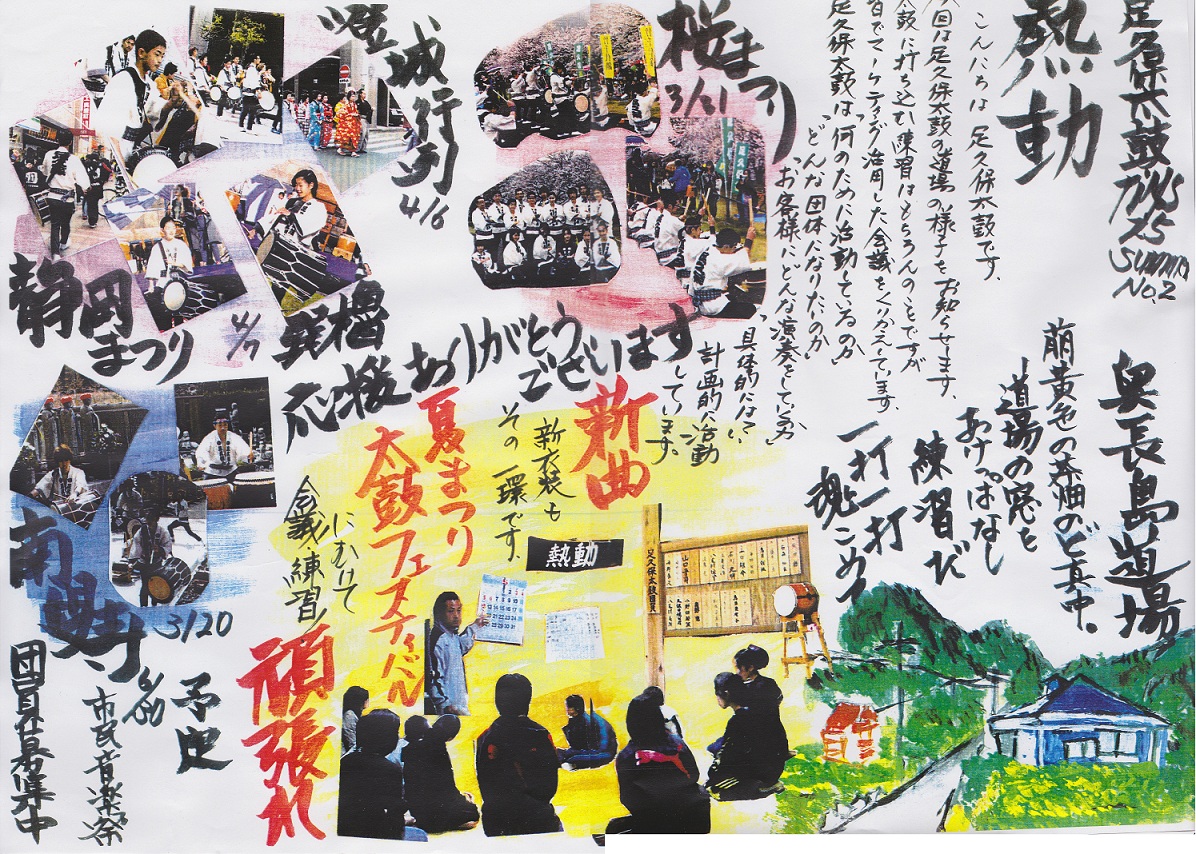 足久保太鼓
NEWS
25
SUMMER
No.2
熱動
こんにちは 足久保太鼓です。
今回は足久保太鼓の道場の様子をお知らせします。
太鼓に打ち込む練習はもちろんのことですが
皆でマーケティング活用した会議をくりかえしています。
足久保太鼓は「何のために活動しているのか」
「どんな団体になりたいのか」
「お客様にどんな演奏をしているか」
具体的には
計画的に活動
しています。
桜まつり
3/31
大成行列
4/6
静岡
まつり
4/7
応援ありがとう
ございます
奥長島道場
萠黄色の茶畑のど真中。
道場の窓を
あけっぱなし
練習だ
一打一打
魂こめて
新曲
新衣装も
その一環です。
夏まつり
太鼓フェスティバル
にむけて
会議、練習!
頑張れ
熱動
足久保太鼓団員
3/20
予定
市民音楽祭
団員募集中